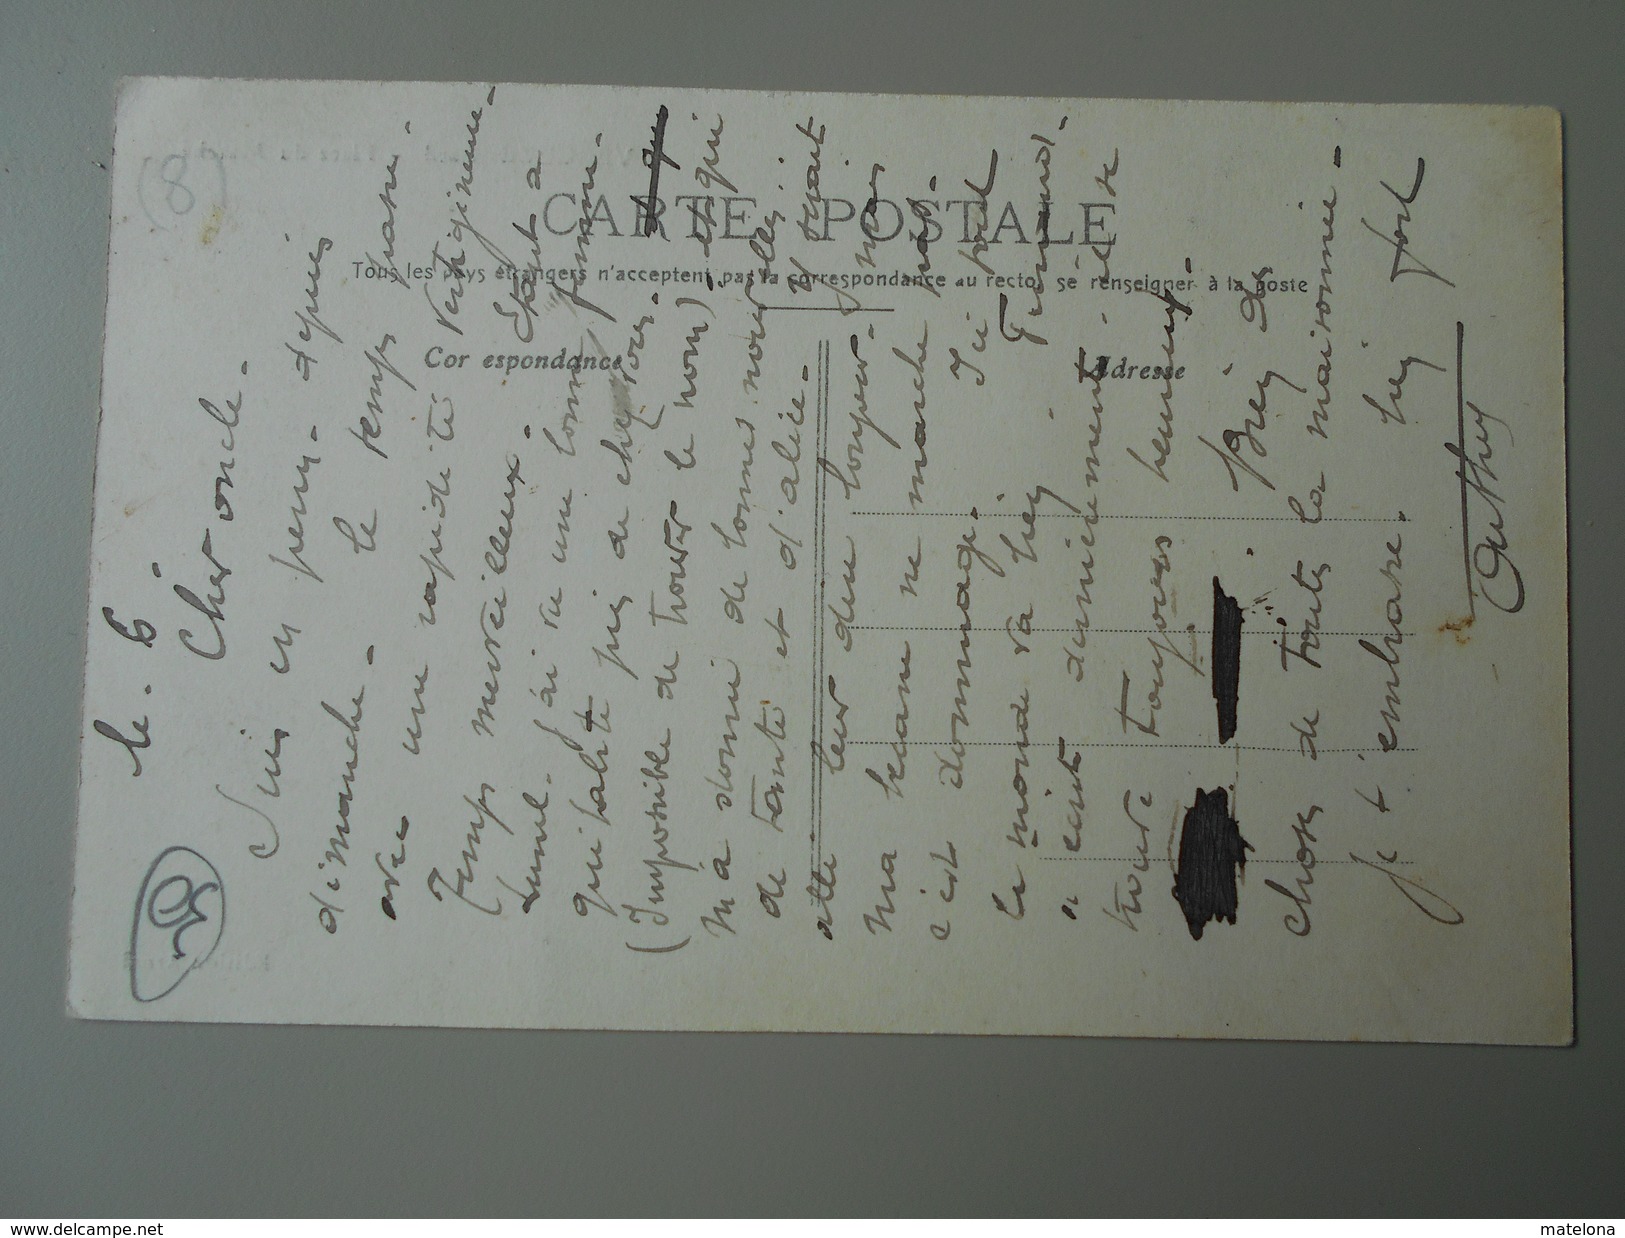 (8)
50
CARTE POSTALE
Tous les pays étrangers n'acceptent pas la correspondance au recto, se renseigner à la poste
Cor espondance
Adresse
le. 6
Cher oncle.
Suis ici depuis
dimanche. le temps passe
avec une rapidité vertigineuse.
Temps merveilleux. Etant à
Lunel. J'ai vu une bonne femme.
qui habite près de chez vous.
(Impossible de trouver le nom) et qui
m'a donné de bonnes nouvelles
de tante et d'alice. Il serait
. mais
ma bécane ne marche pas.
c'est dommage. Ici tout
le monde va bien. Fernand.
a écrit dernièrement. il se
trouve toujours heureux.
Bien des
choses de toute la maisonnée.
Je t'embrasse. bien fort
www.delcampe.net
matelona